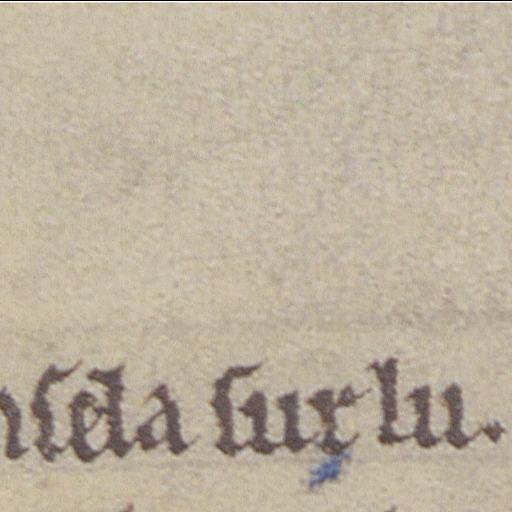 nsela sur lu.